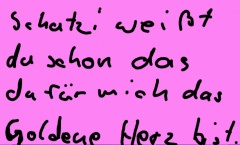 Schatzi weißt
du schon das
du für mich das
Goldene Herz bist.